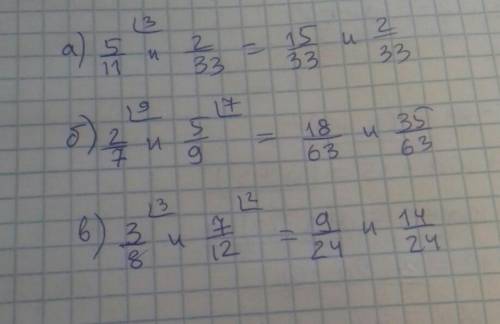 а) 5/11 ⌊3 и 2/33 = 15/33 и 2/33
б) 2/7 ⌊9 и 5/9 ⌊7 = 18/63 и 35/63
в) 3/8 ⌊3 и 7/12 ⌊2 = 9/24 и 14/24